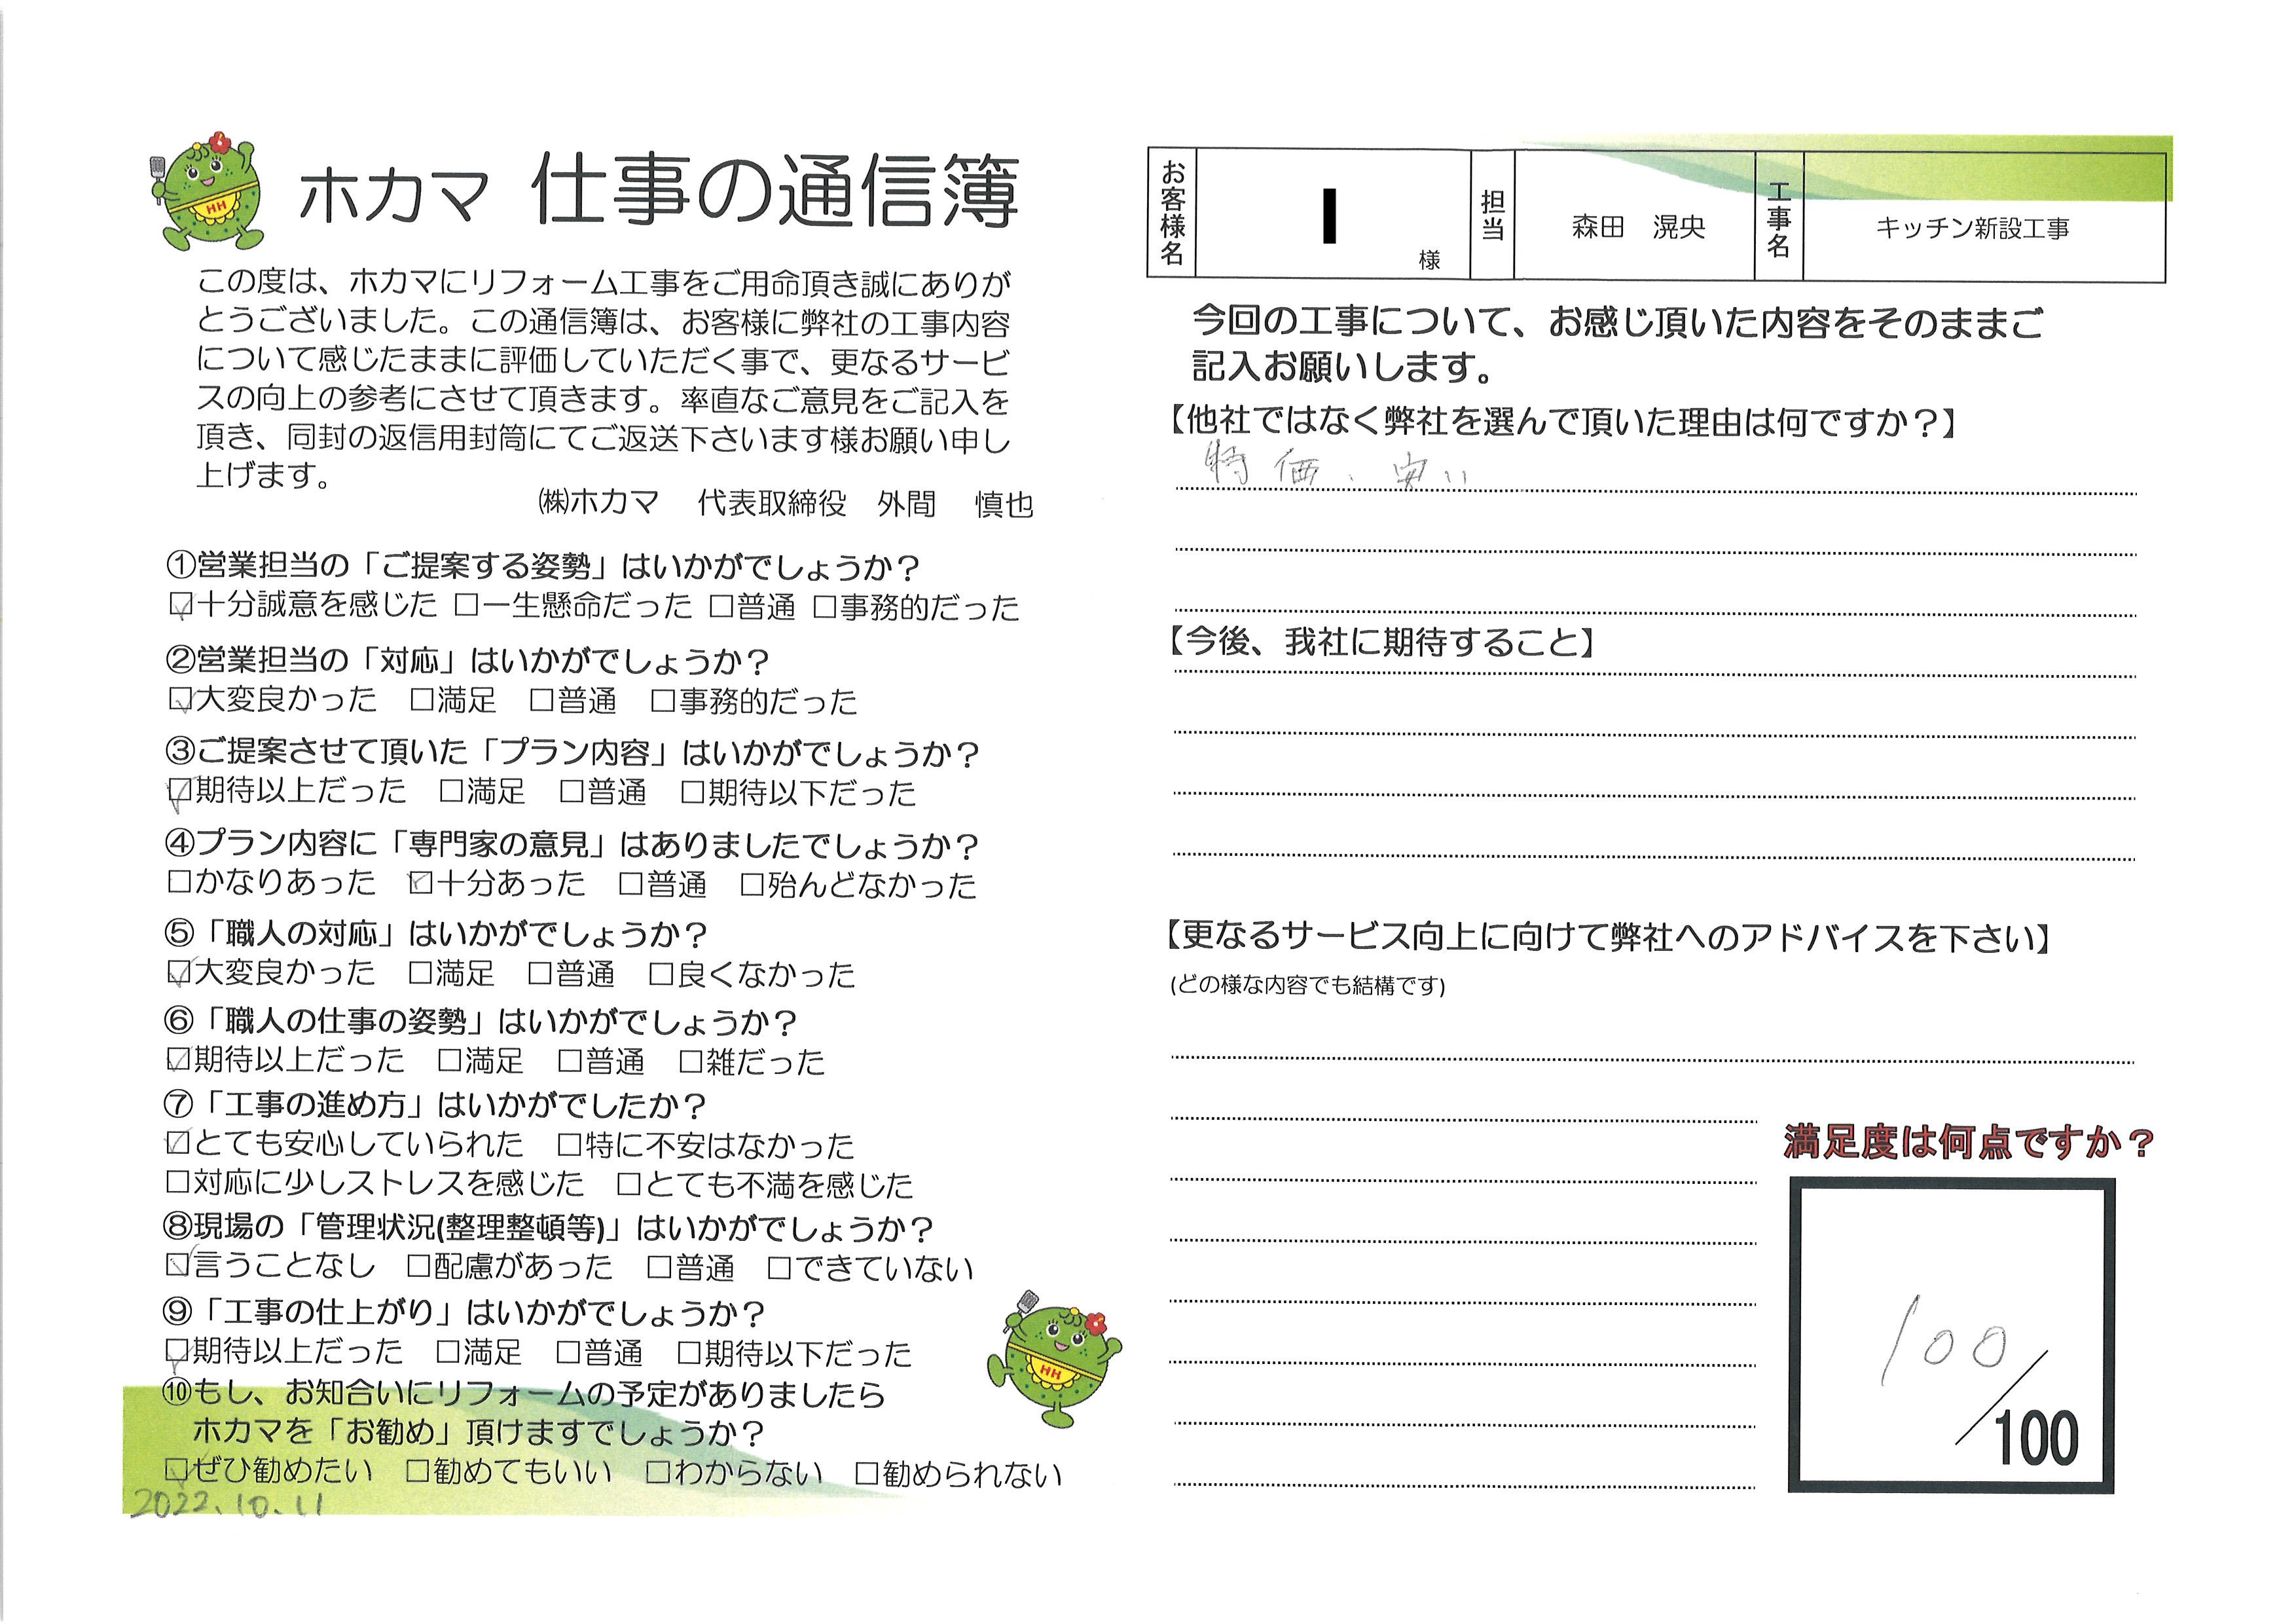 ホカマ 仕事の通信簿
この度は、ホカマにリフォーム工事をご用命頂き誠にありが
とうございました。この通信簿は、お客様に弊社の工事内容
について感じたままに評価していただく事で、更なるサービ
スの向上の参考にさせて頂きます。率直なご意見をご記入を
頂き、同封の返信用封筒にてご返送下さいます様お願い申し
上げます。
㈱ホカマ 代表取締役 外間 慎也
①営業担当の「ご提案する姿勢」はいかがでしょうか？
☑十分誠意を感じた □一生懸命だった □普通 □事務的だった
②営業担当の「対応」はいかがでしょうか？
☑大変良かった □満足 □普通 □事務的だった
③ご提案させて頂いた「プラン内容」はいかがでしょうか？
☑期待以上だった □満足 □普通 □期待以下だった
④プラン内容に「専門家の意見」はありましたでしょうか？
□かなりあった ☑十分あった □普通 □殆んどなかった
⑤「職人の対応」はいかがでしょうか？
☑大変良かった □満足 □普通 □良くなかった
⑥「職人の仕事の姿勢」はいかがでしょうか？
☑期待以上だった □満足 □普通 □雑だった
⑦「工事の進め方」はいかがでしたか？
☑とても安心していられた □特に不安はなかった
□対応に少しストレスを感じた □とても不満を感じた
⑧現場の「管理状況(整理整頓等)」はいかがでしょうか？
☑言うことなし □配慮があった □普通 □できていない
⑨「工事の仕上がり」はいかがでしょうか？
☑期待以上だった □満足 □普通 □期待以下だった
⑩もし、お知合いにリフォームの予定がありましたら
ホカマを「お勧め」頂けますでしょうか？
☑ぜひ勧めたい □勧めてもいい □わからない □勧められない
2022.10.11
お客様名 I 様 担当 森田 滉央 工事名 キッチン新設工事
今回の工事について、お感じ頂いた内容をそのままご
記入お願いします。
【他社ではなく弊社を選んで頂いた理由は何ですか？】
特価、安い
【今後、我社に期待すること】
【更なるサービス向上に向けて弊社へのアドバイスを下さい】
(どの様な内容でも結構です)
満足度は何点ですか？
100
/100
HH
HH